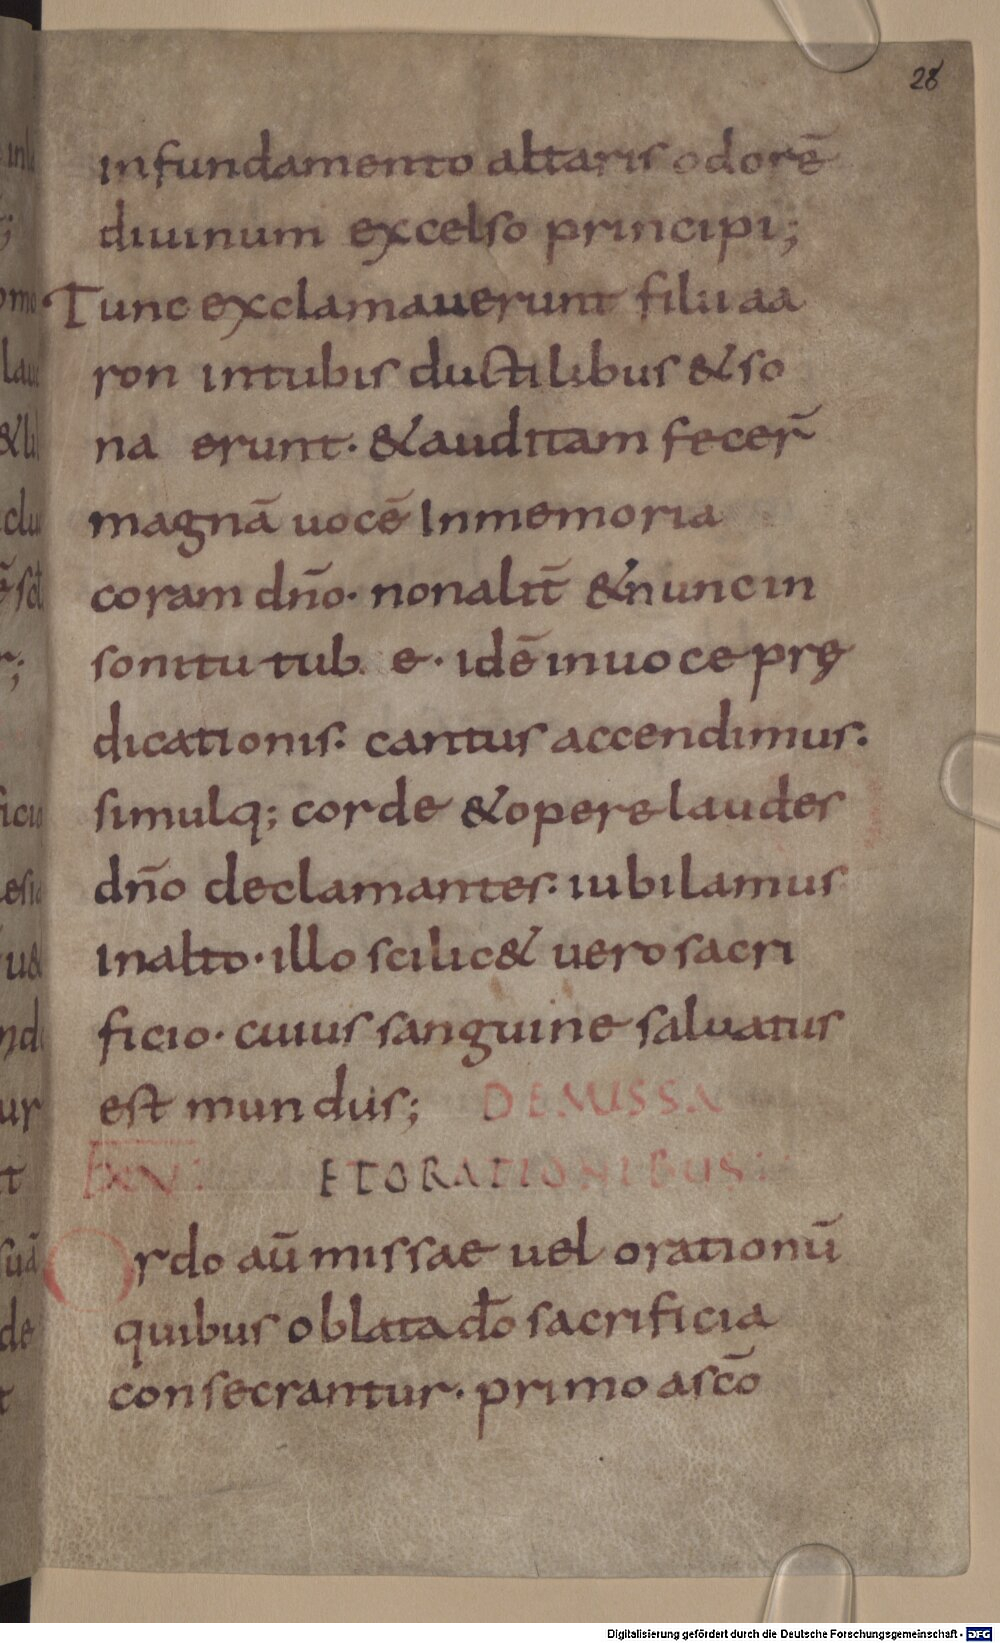 28
infundamento altaris odorē
diuinum excelso principi;
Tunc exclamauerunt filii aa
ron intubis ductilibus &so
na erunt· &auditam fecer̄
magnā uocē Inmemoria
coram dn̄o· nonalit̄ &nuncin
sonitu tub e· idē inuoce prę
dicationis· cantus accendimus·
simulq; corde &opere laudes
dn̄o declamantes· iubilamus
inalto· illo scilic& uero sacri
ficio· cuius sanguine saluatus
est mundus; DEMISSA
ETORATIONIBUS:
Ordo aū missae uel orationū
quibus oblata do̅ sacrificia
consecrantur· primo ascō
Digitalisierung gefördert durch die Deutsche Forschungsgemeinschaft - DFG